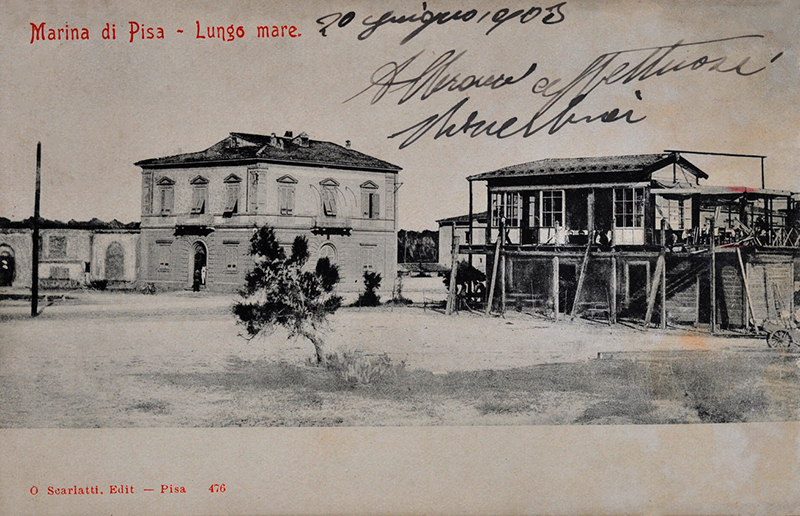 Marina di Pisa - Lungo mare.
20 giugno, 903
affettuosi
O Scarlatti. Edit — Pisa 476